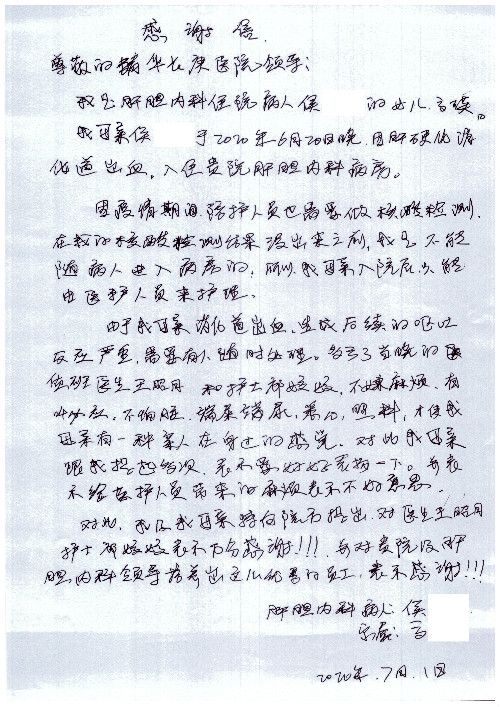 感谢信
尊敬的清华长庚医院领导：
我是肝胆内科住院病人侯 的女儿
我母亲侯 于2020年6月20日晚，因肝硬化消
化道出血，入住贵院肝胆内科病房。
因疫情期间陪护人员也需要做核酸检测，
在我的核酸检测结果没出来之前，我是不能
随病人进入病房的，所以我母亲入院后只能
由医护人员来护理。
由于我母亲消化道出血，造成后续的呕吐
反应严重，需要有人随时处理。当天当晚的
值班医生王昭月和护士 姣姣，不嫌麻烦，有
不怕脏，端 端尿，
母亲有一种亲人在身边的感觉。对此我母亲
跟我提起 ，表示要好好 一下。并表
示给医护人员带来的麻烦表示不好意思。
对此，我及我母亲特向院方提出，对医生王昭月
护士 姣姣表示万分感谢!!! 并对贵院及肝
胆内科领导 出这么优秀的员工，表示感谢!!!
肝胆内科病人：侯
家属：
2020年.7月.1日